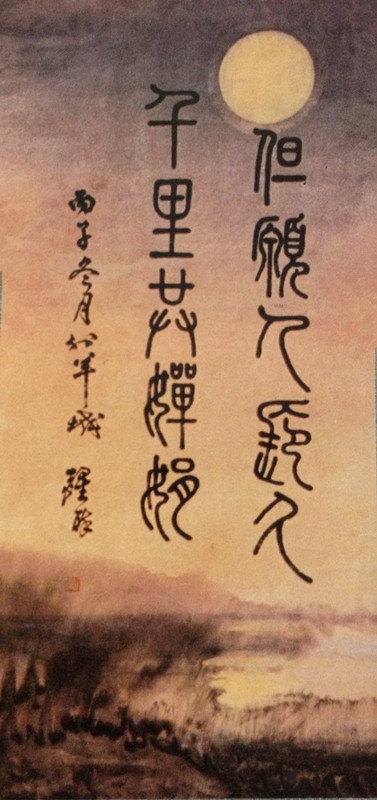 但願人長久
千里共嬋娟
丙子冬月於羊城